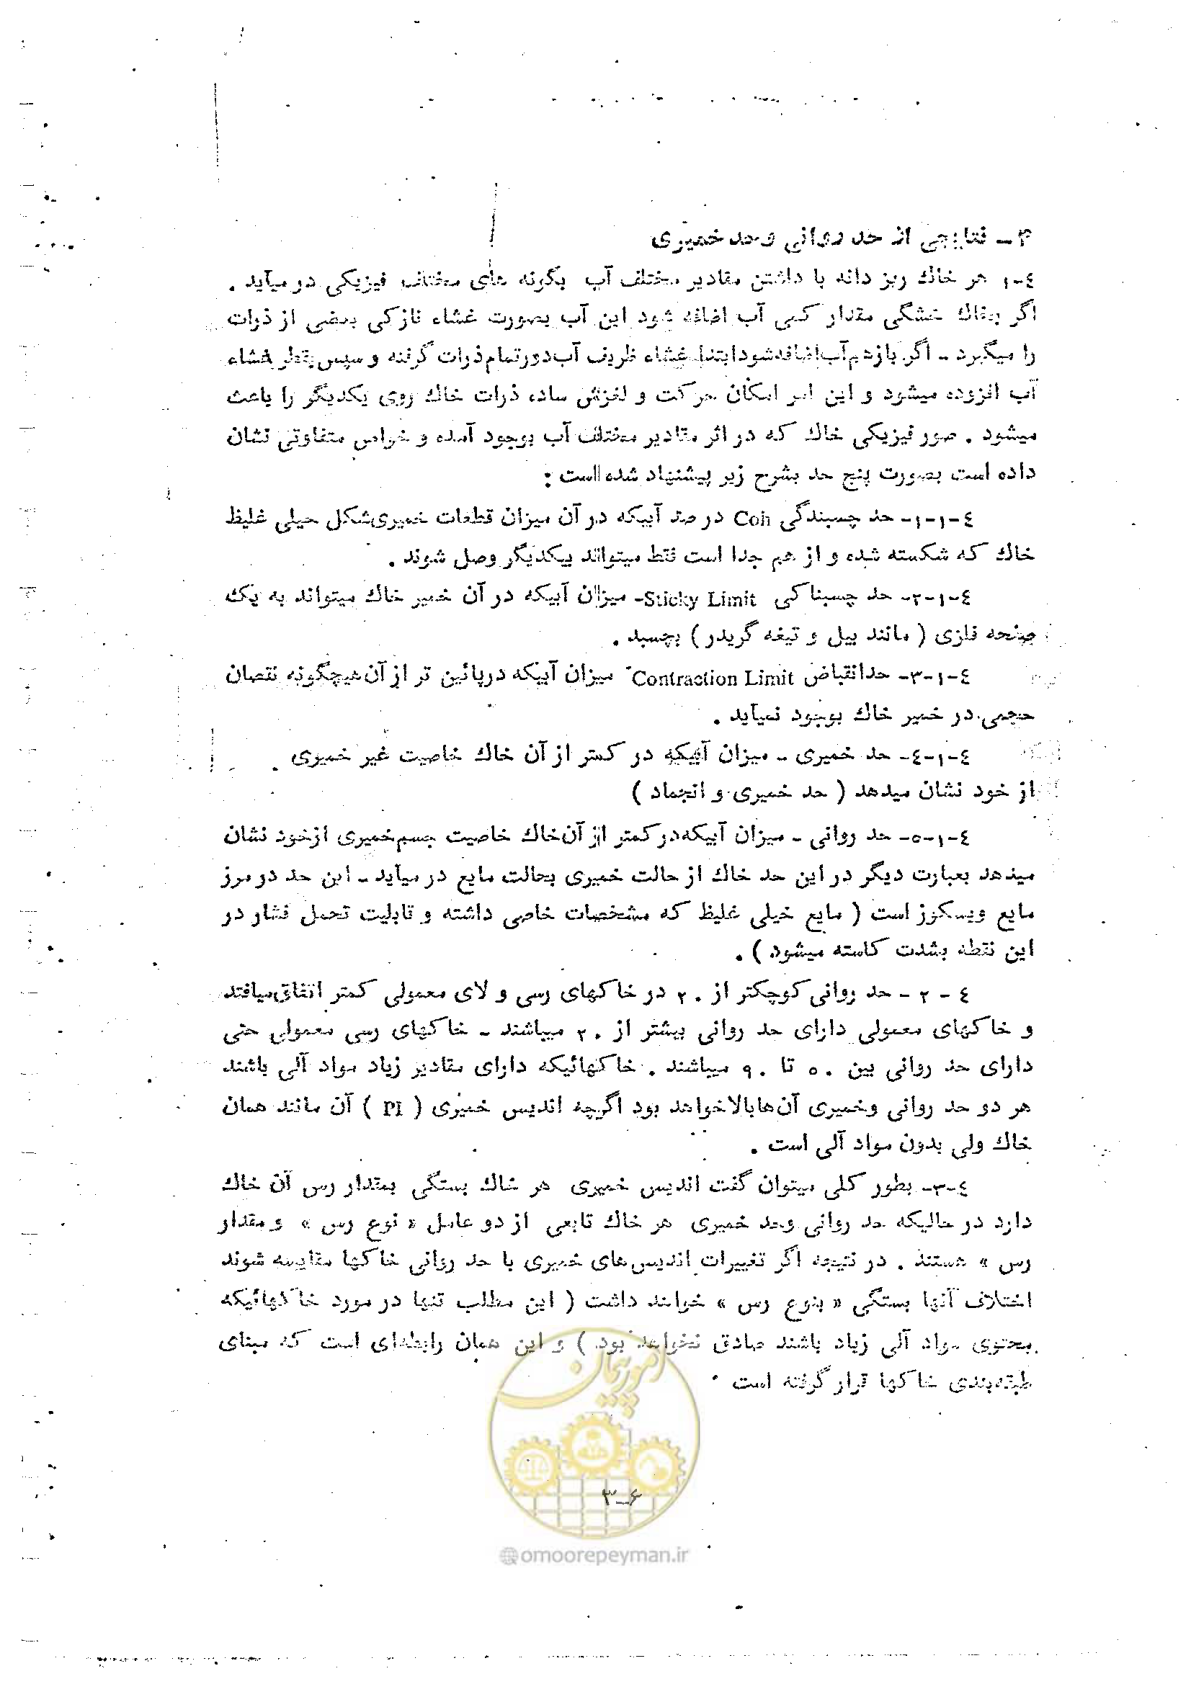 ۴ ـ نتایجی از حد روانی و حد خمیری
٤-۱ هر خاك ریز دانه با داشتن مقادیر مختلف آب بگونه های مختلف فیزیکی در میآید .
اگر بخاك خشگی مقدار کمی آب اضافه شود این آب بصورت غشاء نازکی بعضی از ذرات
را میگیرد ـ اگر بازدهم آب اضافه شود ابتدا غشاء ظریف آب دور تمام ذرات گرفته و سپس بقطر غشاء
آب افزوده میشود و این امر امکان حرکت و لغزش ساده ذرات خاك روی یکدیگر را باعث
میشود . صور فیزیکی خاك که در اثر مقادیر مختلف آب بوجود آمده و خواص متفاوتی نشان
داده است بصورت پنج حد بشرح زیر پیشنهاد شده است :
٤-۱-۱- حد چسبندگی Coh درصد آبیکه در آن میزان قطعات خمیری‌شکل خیلی غلیظ
خاك که شکسته شده و از هم جدا است فقط میتواند بیکدیگر وصل شوند .
٤-۱-۲- حد چسبناکی Sticky Limit- میزان آبیکه در آن خمیر خاك میتواند به یك
صفحه فلزی ( مانند بیل و تیغه گریدر ) بچسبد .
٤-۱-۳- حدانقباض Contraction Limit میزان آبیکه درپائین تر از آن هیچگونه نقصان
حجمی در خمیر خاك بوجود نمیآید .
٤-۱-٤- حد خمیری ـ میزان آبیکه در کمتر از آن خاك خاصیت غیر خمیری
از خود نشان میدهد ( حد خمیری و انجماد )
٤-۱-٥- حد روانی ـ میزان آبیکه در کمتر از آن خاك خاصیت جسم خمیری ازخود نشان
میدهد بعبارت دیگر در این حد خاك از حالت خمیری بحالت مایع در میآید ـ این حد در مرز
مایع ویسکوز است ( مایع خیلی غلیظ که مشخصات خاصی داشته و قابلیت تحمل فشار در
این نقطه بشدت کاسته میشود ) .
٤ - ۲ - حد روانی کوچکتر از ۲۰ در خاکهای رسی و لای معمولی کمتر اتفاق میافتد
و خاکهای معمولی دارای حد روانی بیشتر از ۲۰ میباشند ـ خاکهای رسی معمولی حتی
دارای حد روانی بین ٥۰ تا ۹۰ میباشند . خاکهائیکه دارای مقادیر زیاد مواد آلی باشند
هر دو حد روانی وخمیری آن‌ها بالاخواهد بود اگرچه اندیس خمیری ( PI ) آن مانند همان
خاك ولی بدون مواد آلی است .
٤-۳- بطور کلی میتوان گفت اندیس خمیری هر خاك بستگی بمقدار رس آن خاك
دارد در حالیکه حد روانی وحد خمیری هر خاك تابعی از دو عامل « نوع رس » و مقدار
رس » هستند . در نتیجه اگر تغییرات اندیس‌های خمیری با حد روانی خاکها مقایسه شوند
اختلاف آنها بستگی « بنوع رس » خواهند داشت ( این مطلب تنها در مورد خاکهائیکه
محتوی مواد آلی زیاد باشند صادق نخواهد بود ) و این همان رابطه‌ای است که مبنای
طبقه‌بندی خاکها قرار گرفته است .
امور پیمان
۳-۶
@omoorepeyman.ir